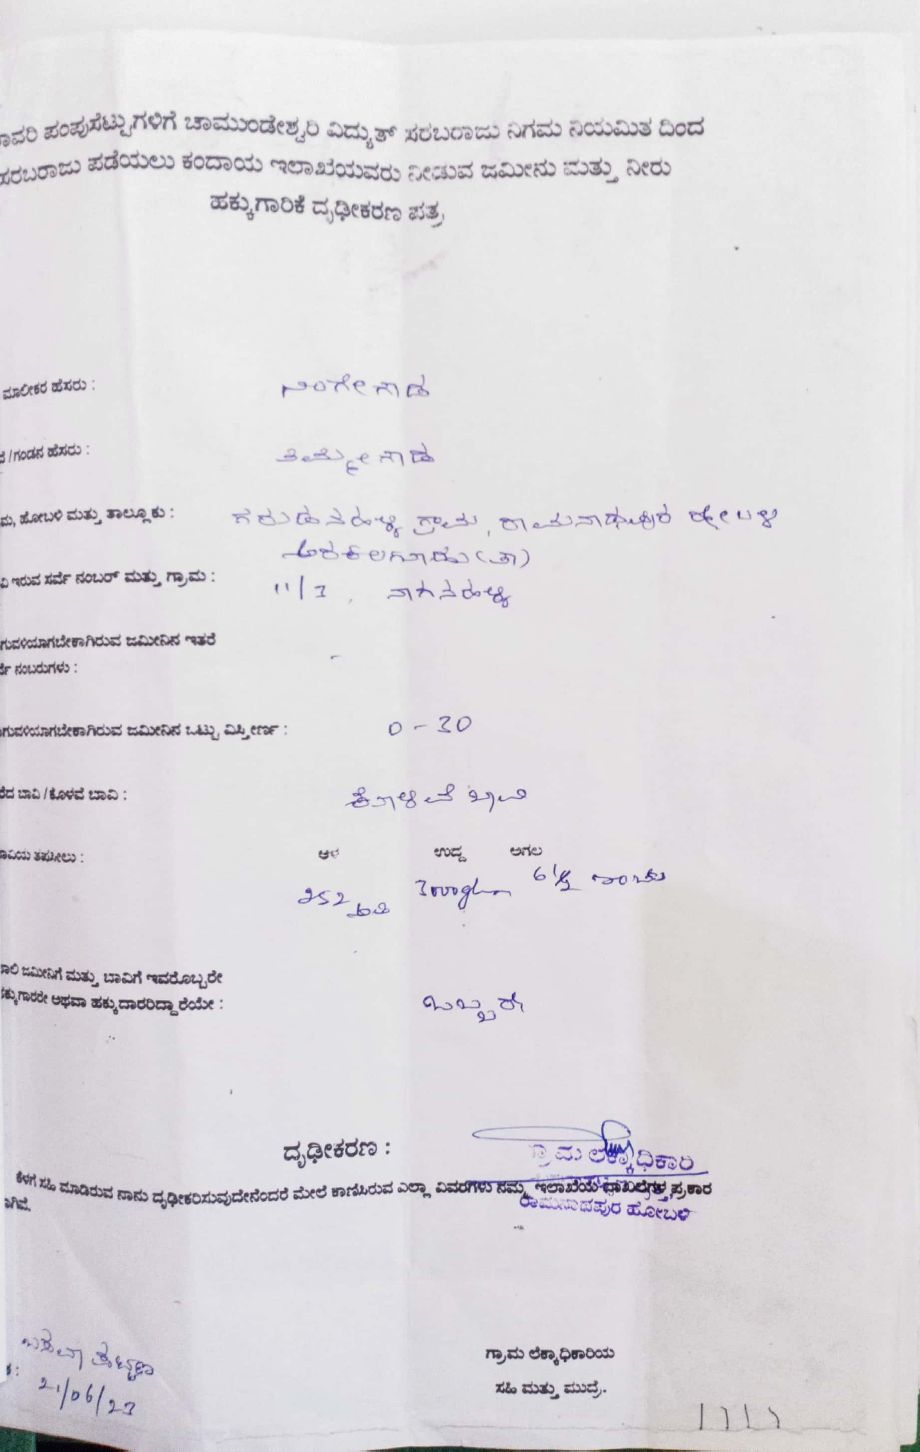 ಾವರಿ ಪಂಪುಸೆಟ್ಟುಗಳಿಗೆ ಚಾಮುಂಡೇಶ್ವರಿ ವಿದ್ಯುತ್ ಸರಬರಾಜು ನಿಗಮ ನಿಯಮಿತ ದಿಂದ
ಸರಬರಾಜು ಪಡೆಯಲು ಕಂದಾಯ ಇಲಾಖೆಯವರು ನೀಡುವ ಜಮೀನು ಮತ್ತು ನೀರು
ಹಕ್ಕುಗಾರಿಕೆ ದೃಢೀಕರಣ ಪತ್ರ
ಮಾಲೀಕರ ಹೆಸರು : ನಿಂಗೇಗೌಡ
/ಗಂಡನ ಹೆಸರು : ತಿಮ್ಮೇಗೌಡ
ಮ, ಹೋಬಳಿ ಮತ್ತು ತಾಲ್ಲೂಕು : ಗರುಡನಹಳ್ಳಿ ಗ್ರಾಮ, ರಾಮನಾಥಪುರ ಹೋಬಳಿ
ಅರಕಲಗೂಡು (ತಾ)
ವಿ ಇರುವ ಸರ್ವೆ ನಂಬರ್ ಮತ್ತು ಗ್ರಾಮ : 11/3, ನಾಗನಹಳ್ಳಿ
ಗುವಳಿಯಾಗಬೇಕಾಗಿರುವ ಜಮೀನಿನ ಇತರೆ
ರ್ವೆ ನಂಬರುಗಳು : -
ಗುವಳಿಯಾಗಬೇಕಾಗಿರುವ ಜಮೀನಿನ ಒಟ್ಟು ವಿಸ್ತೀರ್ಣ : 0-30
ರೆದ ಬಾವಿ/ಕೊಳವೆ ಬಾವಿ : ಕೊಳವೆ ಬಾವಿ
ಾವಿಯ ತಪಸೀಲು : ಆಳ ಉದ್ದ ಅಗಲ
252 ಅಡಿ 6½ ಇಂಚು
ಾಲಿ ಜಮೀನಿಗೆ ಮತ್ತು ಬಾವಿಗೆ ಇವರೊಬ್ಬರೇ
ಕ್ಕುಗಾರರೇ ಅಥವಾ ಹಕ್ಕುದಾರರಿದ್ದಾರೆಯೇ : ಒಬ್ಬರೇ
ದೃಢೀಕರಣ :
ಗ್ರಾಮ ಲೆಕ್ಕಾಧಿಕಾರಿ
ಕೆಳಗೆ ಸಹಿ ಮಾಡಿರುವ ನಾನು ದೃಢೀಕರಿಸುವುದೇನೆಂದರೆ ಮೇಲೆ ಕಾಣಿಸಿರುವ ಎಲ್ಲಾ ವಿವರಗಳು ನಮ್ಮ ಇಲಾಖೆಯ ದಾಖಲೆಗಳ ಪ್ರಕಾರ
ಾಗಿವೆ.
ರಾಮನಾಥಪುರ ಹೋಬಳಿ
21/06/23
ಗ್ರಾಮ ಲೆಕ್ಕಾಧಿಕಾರಿಯ
ಸಹಿ ಮತ್ತು ಮುದ್ರೆ.